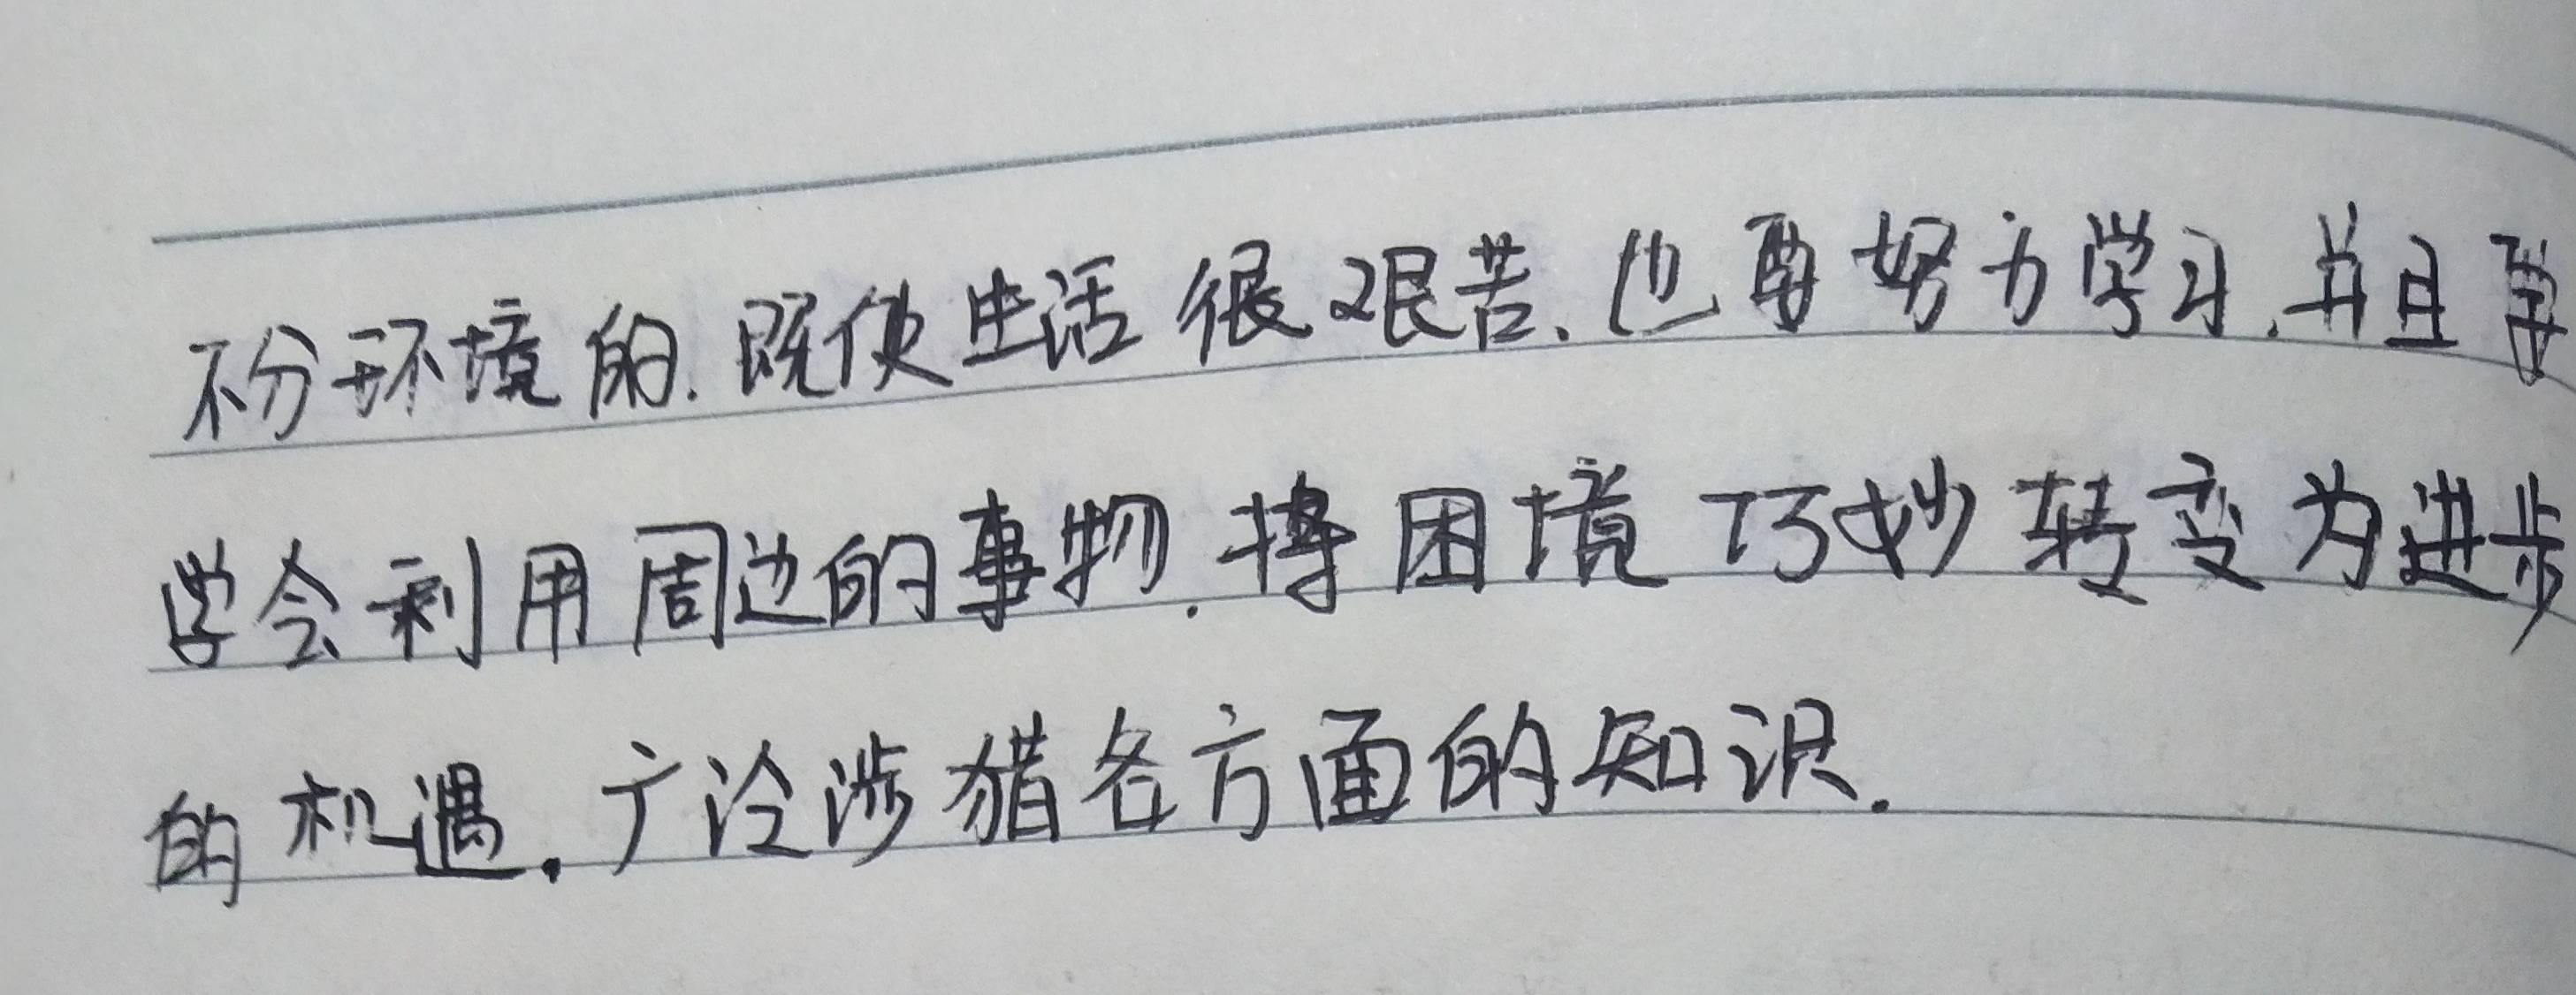 不分环境的.既使生活很艰苦.也要努力学习.并且要
学会利用周边的事物.将困境巧妙转变为进步
的机遇.广泛涉猎各方面的知识.